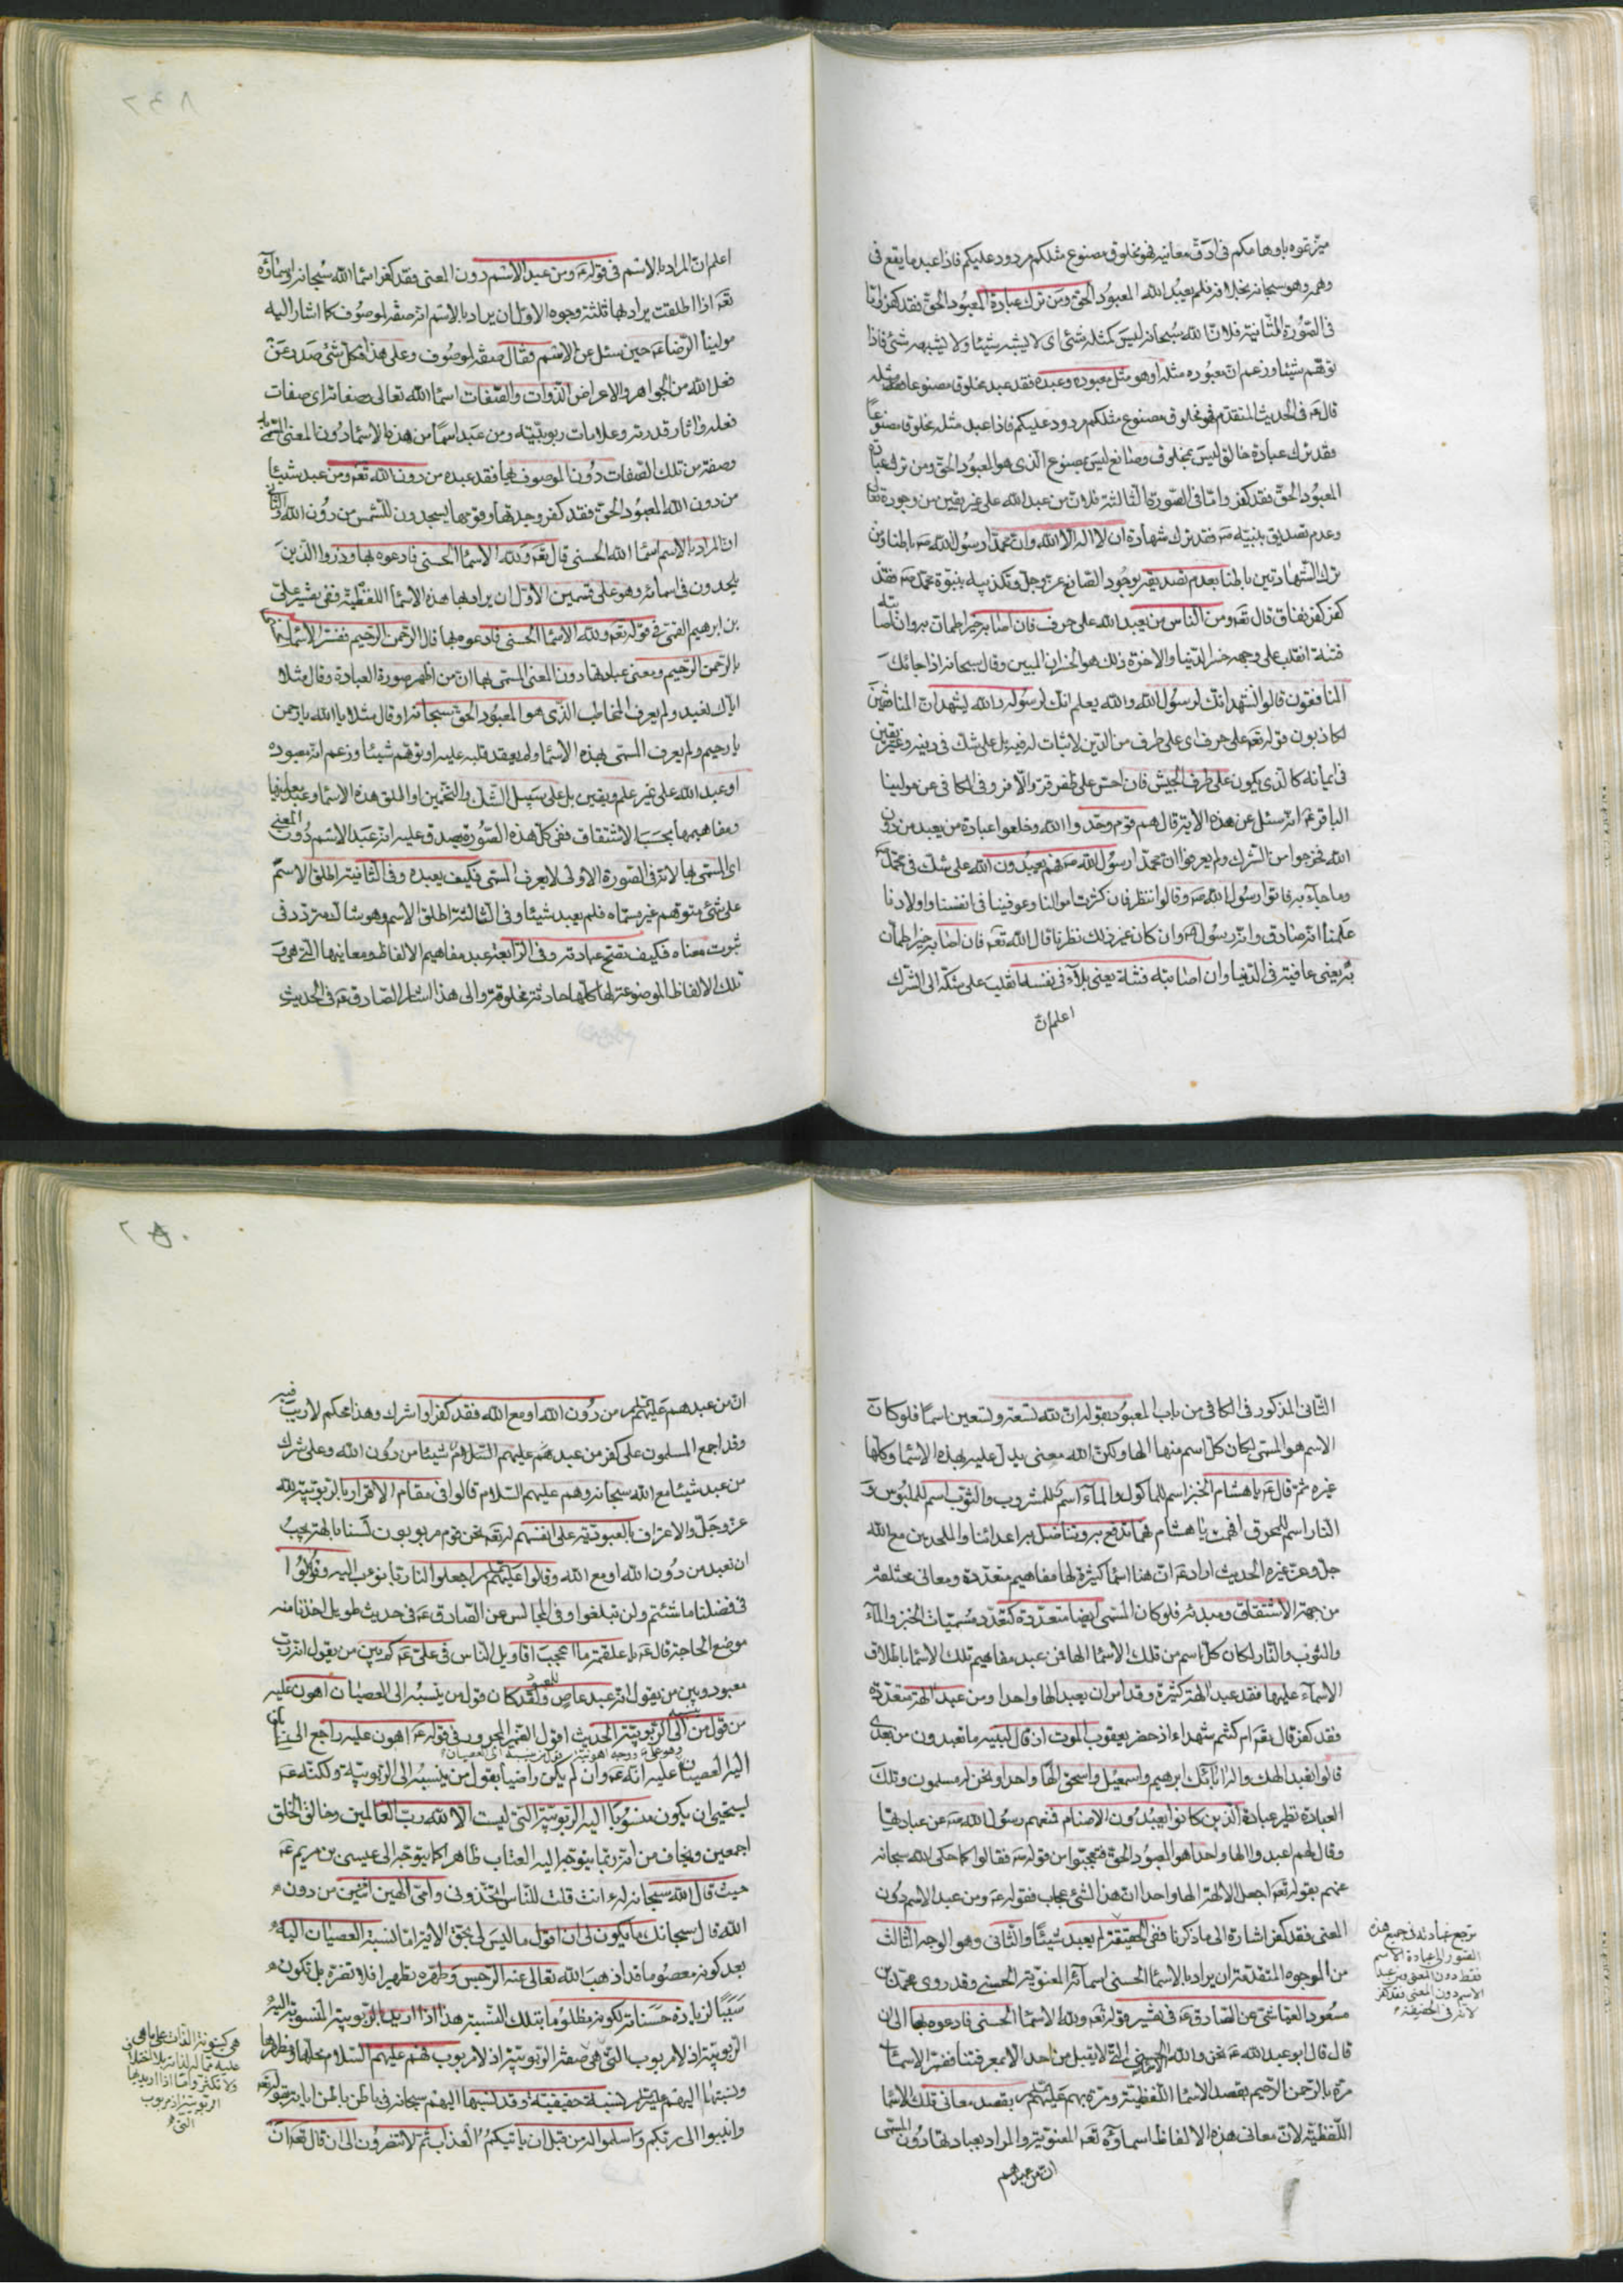 ميزتموه باوهامكم فى ادق معانيه فهو مخلوق مصنوع مثلكم مردود عليكم فاذا عبد ما يقع فى
وهمه وهو سبحانه بخلافه فلم يعبد الله المعبود الحق ومن ترك عبادة المعبود الحق فقد كفر واما
فى الصورة الثانية فلان الله سبحانه ليس كمثله شئ اى لا يشبه شيئا ولا يشبهه شئ فاذا
توهم شيئا وزعم ان معبوده مثله او هو مثل معبوده وعبده فقد عبد مخلوق مصنوعا مثله
قال ع فى الحديث المتقدم فهو مخلوق مصنوع مثلكم مردود عليكم فاذا عبد مثله مخلوق مصنوعا
فقد ترك عبادة خالق ليس بمخلوق وصانع ليس بمصنوع الذى هو المعبود الحق ومن ترك عبادة
المعبود الحق فقد كفر واما فى الصورة الثالثة فلان من عبد الله على غير يقين من وجوده تعالى
وعدم تصديق بنبيه ص فقد ترك شهادة ان لا اله الا الله وان محمدا رسول الله ص باطنا ومن
ترك الشهادتين باطنا بعدم تصديقه بوجود الصانع عز وجل وتكذيبه بنبوة محمد ص فقد
كفر كفر نفاق قال تعه ومن الناس من يعبد الله على حرف فان اصابه خير اطمان به وان اصابته
فتنة انقلب على وجهه خسر الدنيا والاخرة ذلك هو الخسران المبين وقال سبحانه اذا جائك
المنافقون قالوا نشهد انك لرسول الله والله يعلم انك لرسوله والله يشهد ان المنافقين
لكاذبون قوله تعه على حرف اى على طرف من الدين لا ثبات له فيه بل على شك فى دينه وغير يقين
فى ايمانه كالذى يكون على طرف الجيش فان احس على ظفر قر والا فر وفى الكافى عن مولينا
الباقر ع انه سئل عن هذه الاية قال هم قوم وحدوا الله وخلعوا عبادة من يعبد من دون
الله فخرجوا من الشرك ولم يعرفوا ان محمدا رسول الله ص فهم يعبدون الله على شك فى محمد ص
وما جاء به فاتوا رسول الله ص وقالوا ننظر فان كثرت اموالنا وعوفينا فى انفسنا واولادنا
علمنا انه صادق وانه رسول الله وان كان غير ذلك نظرنا قال الله تعه فان اصابه خير اطمان
به يعنى عافية فى الدنيا وان اصابته فتنة يعنى بلاء فى نفسه انقلب على شكه الى الشرك
اعلم ان
اعلم ان المراد بالاسم فى قوله ع ومن عبد الاسم دون المعنى فقد كفر اسماء الله سبحانه واسماؤه
تعه اذا اطلقت يراد بها ثلثة وجوه الاول ان يراد بالاسم انه صفة لموصوف كما اشار اليه
مولينا الرضا ع حين سئل عن الاسم فقال صفة لموصوف وعلى هذا فكل شئ صدر عن
فعل الله من الجواهر والاعراض الذوات والصفات اسماء الله تعالى وصفاته اى صفات
فعله واثار قدرته وعلامات ربوبيته ومن عبد اسما من هذه الاسماء دون المعنى المسمى به
وصفة من تلك الصفات دون الموصوف بها فقد عبده من دون الله تعه ومن عبد شيئا
من دون الله المعبود الحق فقد كفر وجدتها وقومها يسجدون للشمس من دون الله والثانى
ان المراد بالاسم اسماء الله الحسنى قال تعه ولله الاسماء الحسنى فادعوه بها وذروا الذين
يلحدون فى اسمائه وهو على قسمين الاول ان يراد بها هذه الاسماء اللفظية ففى تفسير على
بن ابرهيم القمى فى قوله تعه ولله الاسماء الحسنى فادعوه بها قال الرحمن الرحيم ففسر الاسماء
بالرحمن الرحيم ومعنى عبادتها دون المعنى المسمى بها ان من اظهر صورة العبادة وقال مثلا
اياك نعبد ولم يعرف المخاطب الذى هو المعبود الحق سبحانه او قال مثلا يا الله يا رحمن
يا رحيم ولم يعرف المسمى بهذه الاسماء ولم يعقد قلبه عليه او توهم شيئا وزعم انه معبوده
او عبد الله على غير علم ويقين بل على سبيل الشك والتخمين او اطلق هذه الاسماء وعبد معانيها
ومفاهيمها بحسب الاشتقاق ففى كل هذه الصورة يصدق عليه انه عبد الاسم دون المعنى
اى المسمى بها لانه فى الصورة الاولى لا يعرف المسمى فكيف يعبده وفى الثانية اطلق الاسم
على شئ متوهم غير مسماه فلم يعبد شيئا وفى الثالثة اطلق الاسم وهو شاك متردد فى
ثبوت معناه فكيف تصح عبادته وفى الرابعة عبد مفاهيم الالفاظ ومعانيها التى هى و
تلك الالفاظ الموضوعة لها كلها حادثة مخلوقة والى هذا اشار الصادق ع فى الحديث
الثانى المذكور فى الكافى من باب المعبود بقوله ان لله تسعة وتسعين اسما فلو كان
الاسم هو المسمى لكان كل اسم منها الها ولكن الله معنى يدل عليه بهذه الاسماء وكلها
غيره ثم قال ع يا هشام الخبز اسم للماكول والماء اسم للمشروب والثوب اسم للملبوس و
النار اسم للمحرق افهمت يا هشام فهما تدفع به وتناضل به اعدائنا والملحدين مع الله
جل وعز غيره الحديث اراد ع ان هنا اسماء كثيرة لها مفاهيم متعددة ومعانى مختلفة
من جهة الاشتقاق ومبدئه فلو كان المسمى ايضا متعددة كتعدد مسميات الخبز والماء
والثوب والنار لكان كل اسم من تلك الاسماء الها فمن عبد مفاهيم تلك الاسماء باطلاق
الاسماء عليها فقد عبد الهة كثيرة وقد امر ان يعبد الها واحدا ومن عبد الهة متعددة
فقد كفر قال تعه ام كنتم شهداء اذ حضر يعقوب الموت اذ قال لبنيه ما تعبدون من بعدى
قالوا نعبد الهك واله ابائك ابرهيم واسمعيل واسحق الها واحدا ونحن له مسلمون وتلك
العبادة نظير عبادة الذين كانوا يعبدون الاصنام فمنعهم رسول الله ص عن عبادتها
وقال لهم اعبدوا الها واحدا هو المعبود الحق فتعجبوا من قوله ص فقالوا كما حكى الله سبحانه
عنهم بقوله تعه اجعل الالهة الها واحدا ان هذا لشئ عجاب فقوله ع ومن عبد الاسم دون
المعنى فقد كفر اشارة الى ما ذكرنا ففى الحقيقة لم يعبد شيئا والثانى وهو الوجه الثالث
من الوجوه المتقدمة ان يراد بالاسماء الحسنى اسمائه المعنوية الحسنى وقد روى محمد بن
مسعود العياشى عن الصادق ع فى تفسير قوله تعه ولله الاسماء الحسنى فادعوه بها الى ان
قال قال ابو عبد الله ع نحن والله الاسماء الحسنى التى لا يقبل من احد الا بمعرفتنا ففسر الاسماء
مرة بالرحمن الرحيم بقصد الاسماء اللفظية ومرة بهم عليهم السلم بقصد معانى تلك الاسماء
اللفظية لان معانى هذه الالفاظ اسماؤه تعه المعنوية والمراد بعبادتها دون المسمى
ان من عبدهم
ترجع عبادته فى جميع هذه
الصور الى عبادة الاسم
فقط دون المعنى ومن عبد
الاسم دون المعنى فقد كفر
لانه فى الحقيقة
ان من عبدهم عليهم السلم من دون الله او مع الله فقد كفر او اشرك وهذا محكم لا ريب فيه
وقد اجمع المسلمون على كفر من عبدهم عليهم السلام شيئا من دون الله وعلى شرك
من عبد شيئا مع الله سبحانه وهم عليهم السلام قالوا فى مقام الاقرار بالربوبية لله
عز وجل والاعتراف بالعبودية على انفسهم له تعه نحن قوم مربوبون لسنا بالهة يجب
ان نعبد من دون الله او مع الله وقالوا عليهم السلم اجعلوا لنا ربا نؤب اليه وقولوا
فى فضلنا ما شئتم ولن تبلغوا وفى المجالس عن الصادق ع فى حديث طويل اخذنا منه
موضع الحاجة قال ع يا علقمة ما اعجب اقاويل الناس فى على ع كم بين من يقول انه رب
معبود وبين من يقول انه عبد عاص للمعبود ولقد كان قول من ينسبه الى العصيان اهون عليه
من قول من ينسبه الى الربوبية الحديث اقول الضمير المجرور فى قوله ع اهون عليه راجع الى
اليه العصيان عليه انه ع وان لم يكن راضيا بقول من ينسبه الى الربوبية ولكنه ع
يستحيى ان يكون منسوبا اليه الربوبية التى ليست الا لله رب العالمين وخالق الخلق
اجمعين ويخاف من انه ربما يتوجه اليه العتاب ظاهرا كما يتوجه الى عيسى بن مريم ع
حيث قال الله سبحانه له ءانت قلت للناس اتخذونى وامى الهين اثنين من دون
الله قال سبحانك ما يكون لى ان اقول ما ليس لى بحق الاية واما نسبة العصيان اليه
بعد كونه معصوما قد اذهب الله تعالى عنه الرجس وطهره تطهيرا فلا تضره بل تكون
سببا لزيادة حسناته لكونه مظلوما بتلك النسبة هذا اذا اريد بالربوبية المنسوبة اليه
الربوبية اذ لا مربوب التى هى صفة الربوبية اذ لا مربوب فهم عليهم السلام محلها ومظهرها
ونسبتها اليهم عليهم السلم نسبة حقيقية وقد نسبها اليهم سبحانه فى باطن باطن اياته بقوله تعه
وانيبوا الى ربكم واسلموا له من قبل ان ياتيكم العذاب ثم لا تنصرون الى ان قال تعه ان
هى كينونة الذات على ما هى
ولا تكثر واما اذا اريد بها
الربوبية اذ مربوب
التى